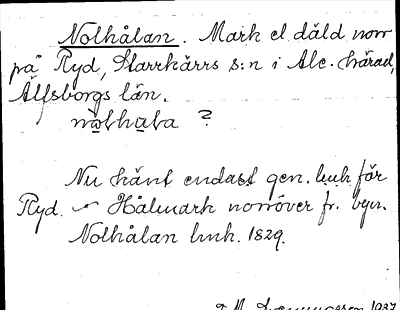 Nolhålan. Mark el. däld norr
på Ryd, Starrkärrs s:n i Ale härad,
Älfsborgs län.
nolhala ?
Nu känt endast gen. lmh för
Ryd. Hålmark norröver fr. byn.
Nolhålan lmh. 1829.